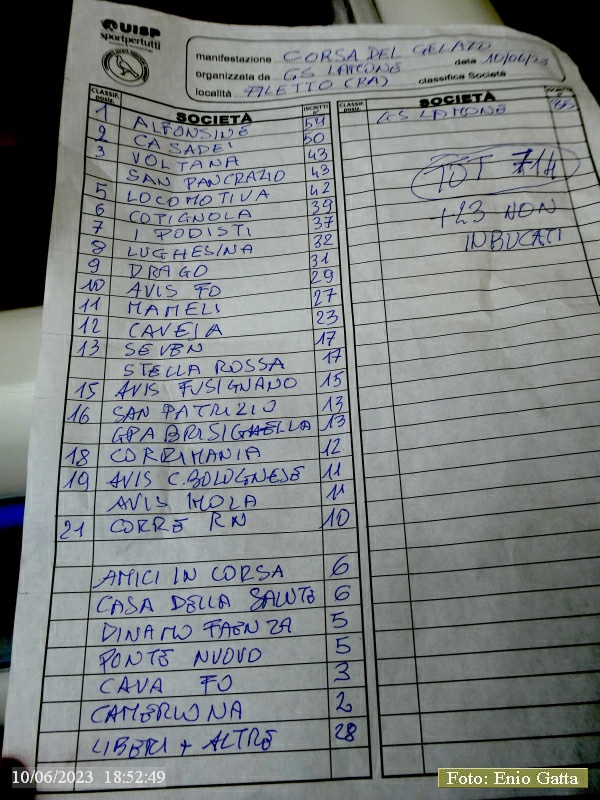 UISP
sportpertutti
manifestazione CORSA DEL GELATO data 10/06/23
organizzata da GS LAMONE classifica Società
località FILETTO (RA)
CLASSIF. posiz. SOCIETÀ ISCRITTI n°
1 ALFONSINE 54
2 CASADEI 50
3 VOLTANA 43
SAN PANCRAZIO 43
5 LOCOMOTIVA 42
6 COTIGNOLA 39
7 I PODISTI 37
8 LUGHESINA 32
9 DRAGO 31
10 AVIS FO 29
11 MAMELI 27
12 CAVEJA 23
13 SEVEN 17
STELLA ROSSA 17
15 AVIS FUSIGNANO 15
16 SAN PATRIZIO 13
GPA BRISIGHELLA 13
18 CORRIMANIA 12
19 AVIS C.BOLOGNESE 11
AVIS IMOLA 11
21 CORRE RN 10
AMICI IN CORSA 6
CASA DELLA SALUTE 6
DINAMO FAENZA 5
PONTE NUOVO 5
CAVA FO 3
CAMERLONA 2
LIBERI + ALTRE 28
CLASSIF. posiz. SOCIETÀ
GS LAMONE 35
TOT 714
+23 NON
IMBUCATI
10/06/2023 18:52:49
Foto: Enio Gatta